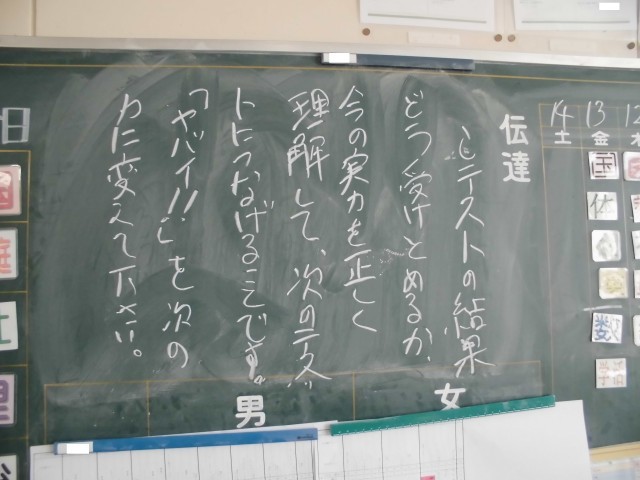 12
13
14
木
金
土
国
数
伝達
しテストの結果
どう受けとめるか、
今の実力を正しく
理解して、次のテス
トにつなげることです。
「ヤバイ!!」を次の
力に変えて下さい。
女
男